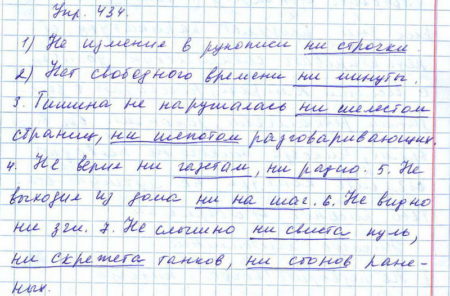 Упр. 434.
1) Не изменил в рукописи ни строчки
2) Нет свободного времени ни минуты.
3. Тишина не нарушалась ни шелестом
страниц, ни шепотом разговаривающих.
4. Не верил ни газетам, ни радио. 5. Не
выходил из дома ни на шаг. 6. Не видно
ни зги. 7. Не слышно ни свиста пуль,
ни скрежета танков, ни стонов ране-
ных.